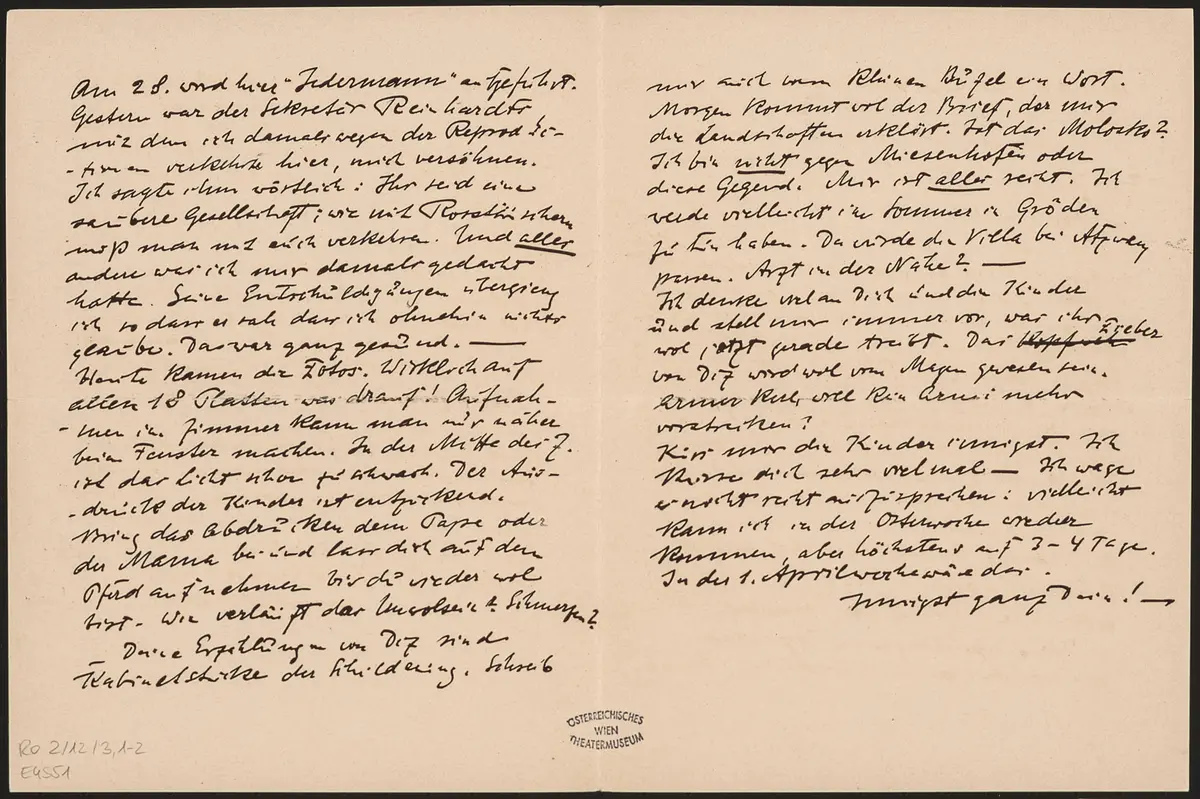 Am 28. wird hier "Jedermann" aufgeführt.
Gestern war der Sekretär Reinhardts
mit dem ich damals wegen der Reproduk-
-tionen verkehrte hier, mich versöhnen.
Ich sagte ihm wörtlich: Ihr seid eine
saubere Gesellschaft; wie mit Rosstäuschern
muß man mit euch verkehren. Und alles
andere was ich mir damals gedacht
hatte. Seine Entschuldigungen übergieng
ich so dass er sah dass ich ohnehin nichts
glaube. Das war ganz gesund. —
Heute kamen die Fotos. Wirklich auf
allen 18 Platten was drauf! Aufnah-
-men im Zimmer kann man nur näher
beim Fenster machen. In der Mitte des Z.
ist das Licht schon zu schwach. Der Aus-
-druck der Kinder ist entzückend.
Bring das Abdrücken dem Papa oder
der Mama bei und lass dich auf dem
Pferd aufnehmen bis du wieder wol
bist. Wie verläuft das Unwolsein? Schmerzen?
Deine Erzählungen von Diz sind
Kabinetstücke der Schilderung. Schreib
mir auch vom kleinen Büzel ein Wort.
Morgen kommt wol der Brief, der mir
die Landschaften erklärt. Ist das Molosko?
Ich bin nicht gegen Miesenhofen oder
diese Gegend. Mir ist alles recht. Ich
werde vielleicht im Sommer in Gröden
zu tun haben. Da würde die Villa bei Atzwang
passen. Arzt in der Nähe? —
Ich denke viel an Dich und die Kinder
und stell mir immer vor, was ihr
wol jetzt gerade treibt. Das Fieber
von Diz wird wol vom Magen gewesen sein.
Armer Kerl, will kein Armei mehr
vorstrecken?
Küss mir die Kinder innigst. Ich
küsse dich sehr vielmal — Ich wage
es nicht recht auszusprechen: vielleicht
kann ich in der Osterwoche wieder
kommen, aber höchstens auf 3-4 Tage.
In der 1. Aprilwoche wäre das.
Innigst ganz Dein! —
ÖSTERREICHISCHES
WIEN
THEATERMUSEUM
RO 2/12/3,1-2
E4551